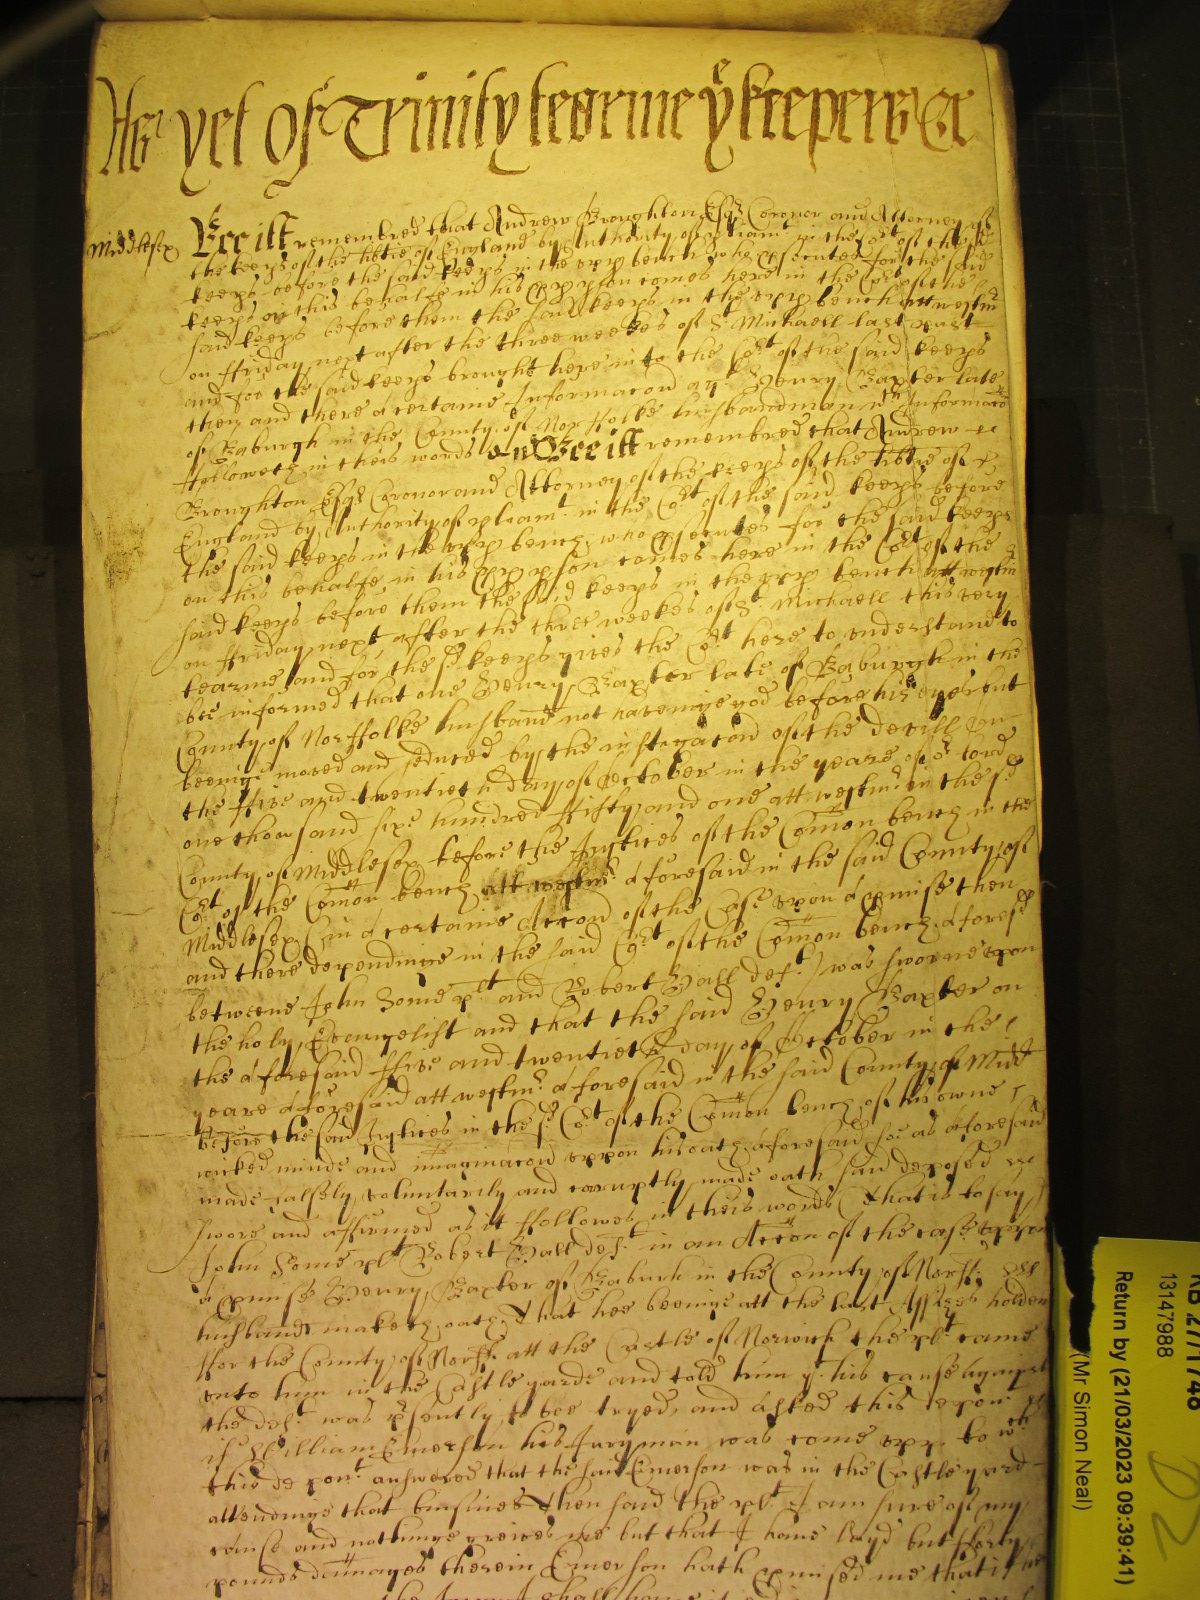 As yet of Trinity tearme ye keepers &c
Middlesex Bee itt remembred that Andrew Broughton Esqr Coronor and Attorney of
the keeps of the libtie of England by Authority of pliamt in the Cort of the sd
keeps before the said keeps in the upp bench who psecutes for the said
keeps in this behalfe in his pp pson comes here in the Cort of the
said keeps before them the said keeps in the upp bench att westmr
on ffriday next after the three weekes of St Michaell last past
and for the said keeps brought here into the Cort of the said keeps
then and there a certaine Informacon agt Henry Baxter late
of Baburgh in the County of Norffolke husbandman wch Informacon
ffolloweth in theis words ss Bee itt remembred that Andrew
Broughton Esqr Coronor and Attorney of the keeps of the libtie of
England by Authority of pliamt in the Cort of the said keeps before
the said keeps in the upp bench who psecutes for the said keeps
on this behalfe in his pp pson comes here in the Cort of the
said keeps before them the said keeps in the upp bench att westm
on ffriday next after the three weekes of St Michaell this very
tearme and for the sd keeps gives the Cort here to understand to
bee informed that one Henry Baxter late of Baburgh in the
County of Norffolke husband not haveinge god before his eyes but
beeinge moved and seduced by the instigacon of the devill on
the ffive and twentieth day of October in the yeare of or lord
one thousand sixe hundred ffifty and one att westmr in the sd
County of Middlesex before the Justices of the Comon bench in the
Cort of the Comon bench att westmr aforesaid in the said County of
Middlesex (in a certaine Accon of the Case upon a pmise then
and there dependinge in the said Cort of the Comon bench aforesd
betweene John Some plt and Robert Ball deft) was sworne upon
the holy Evangelist and that the said Henry Baxter on
the aforesaid ffive and twentieth day of October in the
yeare aforesaid att westmr aforesaid in the said County of Midd
before the said Justices in the sd Cort of the Comon bench of his owne
wicked minde and imaginacon uppon his oath aforesaid soe as aforesaid
made falsely voluntarily and corruptly made oath said deposed
swore and affirmed as it ffollowes in theis words (that is to say)
John Some plt Robert Ball deft in an Accon of the case uppon
a pmise Henry Baxter of Baburh in the County of Norff
husband maketh oath That hee beeinge att the last Assizes holden
ffor the County of Norff att the Castle of Norwich the plt came
unto him in the Castle yarde and told him yt his cause against
the deft was psently to bee tryed and asked this depont
if William Emerson his Juryman was come upp to wch
this depont answered that the said Emerson was in the Castle yard
attendinge that businesse then said the plt I am sure of my
cause and nothinge greives me but that I have layd but fforty
pounds damages therein Emerson hath pmised me that
RB 27/1748
13147988
Return by (21/03/2023 09:39:41)
(Mr Simon Neal)
D2